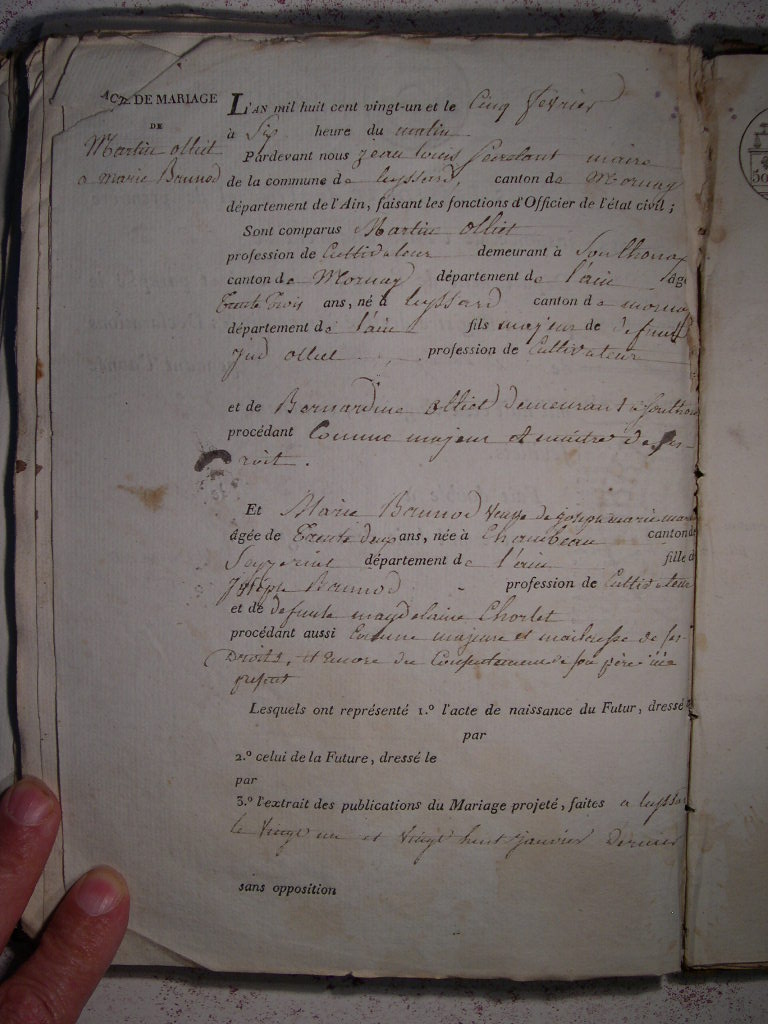 ACTE DE MARIAGE
DE
Martin olliet
a marie Brunod
L'AN mil huit cent vingt-un et le Cinq fevrier
à Six heure du matin
Pardevant nous jean louis maire
de la commune de leyssard, canton de Mornay
département de l'Ain, faisant les fonctions d'Officier de l'état civil;
Sont comparus Martin olliet
profession de Cultivateur demeurant à Soulhonax
canton de Mornay département de l'ain âgé
trente trois ans, né à leyssard canton de mornay
département de l'ain fils majeur de defunt
olliet profession de Cultivateur
et de Bernardine olliet demeurant a
procédant Comme majeur et maitre de ses
droit.
Et Marie Brunod veuve de joseph marie
âgée de trente deux ans, née à Chambeau canton de
département de l'ain fille de
joseph Brunod profession de Cultivateur
et de defunte magdelaine Chorlet
procédant aussi Comme majeure et maitresse de ses
Droits, et encore du Consentement de son père ici
présent
Lesquels ont représenté 1.º l'acte de naissance du Futur, dressé
par
2.º celui de la Future, dressé le
par
3.º l'extrait des publications du Mariage projeté, faites a leyssard
le vingt un et vingt huit janvier Dernier
sans opposition
50